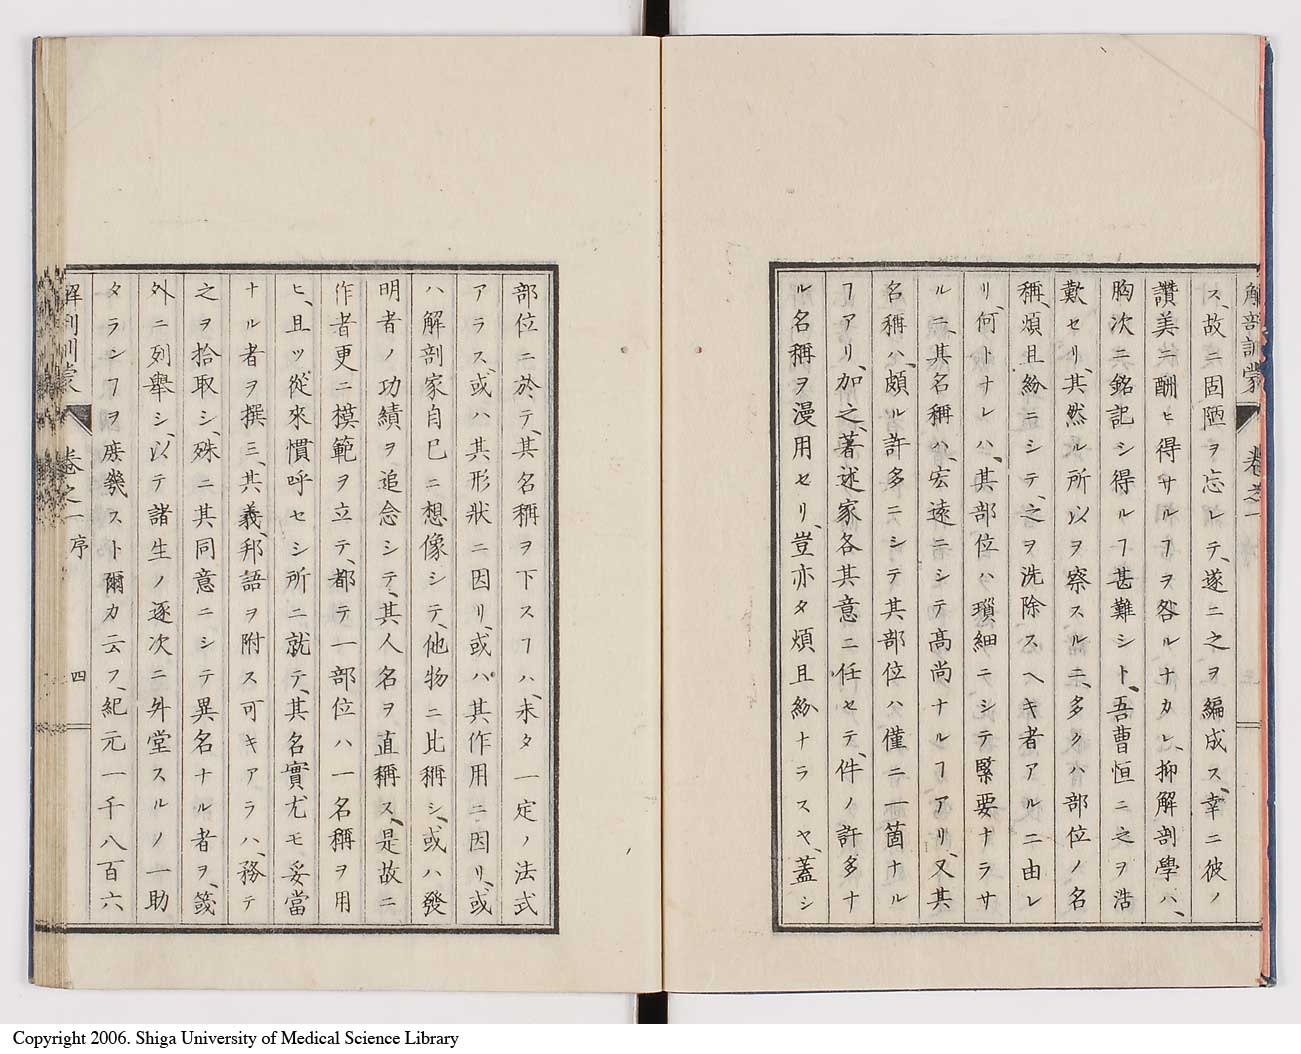 解剖訓蒙 卷之一
ス、故ニ固陋ヲ忘レテ、遂ニ之ヲ編成ス、幸ニ彼ノ
讚美ニ酬ヒ得サルヿヲ咎ルナカレ、抑解剖學ハ、
胸次ニ銘記シ得ルヿ甚難シト、吾曹恒ニ之ヲ浩
歎セリ、其然ル所以ヲ察スルニ、多クハ部位ノ名
稱、煩且紛ニシテ、之ヲ洗除スヘキ者アルニ由レ
リ、何トナレハ、其部位ハ瑣細ニシテ緊要ナラサ
ルニ、其名稱ハ、宏遠ニシテ高尚ナルヿアリ、又其
名稱ハ、頗ル許多ニシテ其部位ハ僅ニ一箇ナル
ヿアリ、加之、著述家各其意ニ任セテ、件ノ許多ナ
ル名稱ヲ漫用セリ、豈亦タ煩且紛ナラスヤ、蓋シ
部位ニ於テ、其名稱ヲ下スヿハ、未タ一定ノ法式
アラス、或ハ其形狀ニ因リ、或ハ其作用ニ因リ、或
ハ解剖家自已ニ想像シテ、他物ニ比稱シ、或ハ發
明者ノ功績ヲ追念シテ、其人名ヲ直稱ス、是故ニ
作者更ニ模範ヲ立テ、都テ一部位ハ一名稱ヲ用
ヒ、且ツ從來慣呼セシ所ニ就テ、其名實尤モ妥當
ナル者ヲ撰ミ、其義、邦語ヲ附ス可キアラハ、務テ
之ヲ拾取シ、殊ニ其同意ニシテ異名ナル者ヲ、箋
外ニ列擧シ、以テ諸生ノ逐次ニ外堂スルノ一助
タランヿヲ庶幾スト爾カ云フ、紀元一千八百六
解剖訓蒙 卷之一 序 四
Copyright 2006. Shiga University of Medical Science Library